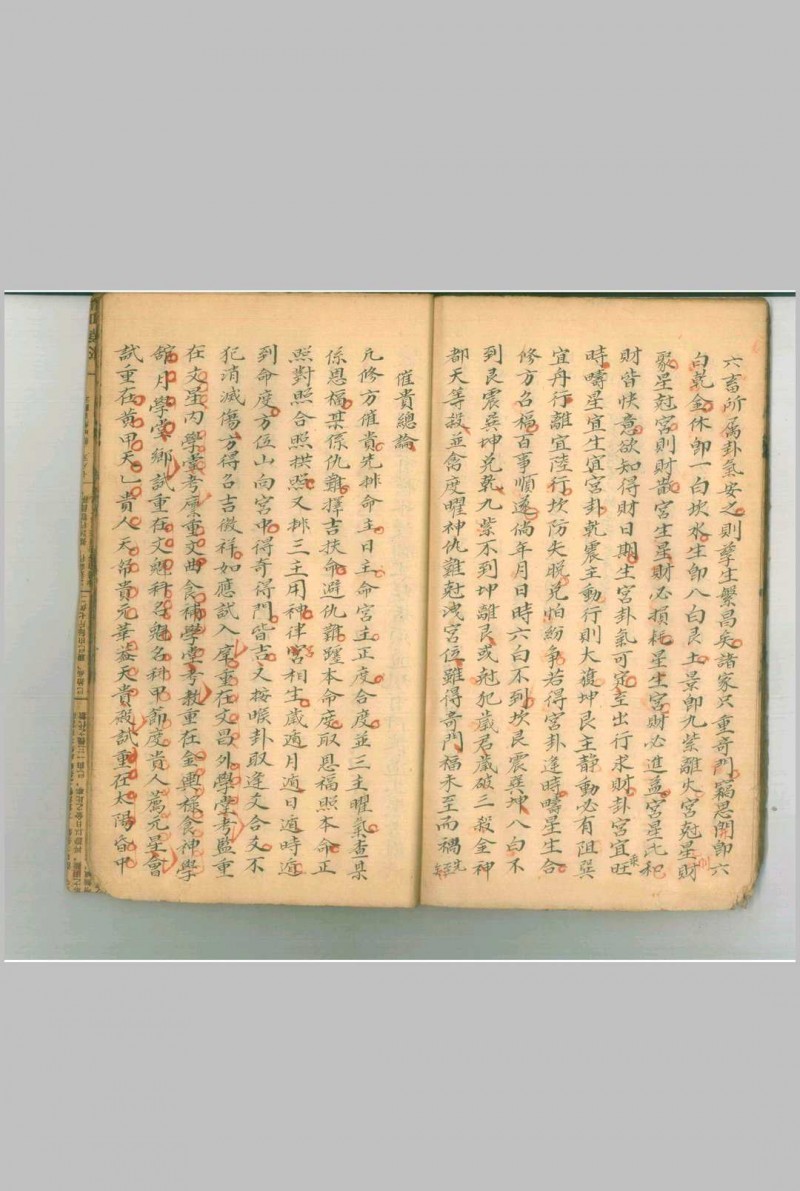 六畜所属卦氣安之則孳生繁昌矣諸家只重奇門竊思開即六
白乾金休即一白坎水生即八白艮土景即九紫離火宮尅星財
聚星尅宮則財散宮生星財必損耗星生宮財必進益宮星比和
財皆快意欲知得財日期生宮卦氣可定至出行求財卦宮宜旺
時疇星宜生宜宮卦乾震主動行則大復坤艮主静動必有阻巽
宜舟行離宜陸行坎防失脫兌怕紛争若得宮卦逢時疇星生合
修方名福百事順遂倘年月日時六白不到坎艮震巽坤八白不
到艮震巽坤兌乾九紫不到坤離艮或尅犯歲君歲破三殺金神
都天等殺並禽度曜神仇難尅洩宮位雖得奇門福未至而禍先
催貴總論
凡修方催貴先排命主日主命宮主正度合度並三主曜氣查某
係恩福某係仇難擇吉扶命避仇難躔本命度取恩福照本命正
照對照合照拱照又排三主用神律宮相生歲遁月遁日遁時遁
到命度方位山向宮中得奇得門皆吉又按喉卦取逢爻合爻不
犯消滅傷方得名吉徵祥如應試入庠重在文昌外學堂考監重
在文星内學堂考廩重文曲食神學堂考教重在金輿祿食神學
舘月學堂鄉試重在文魁科名魁名科甲節度貴人薦元星會
試重在黄甲天乙貴人天帝貴元華盖天貴殿試重在太陽命中